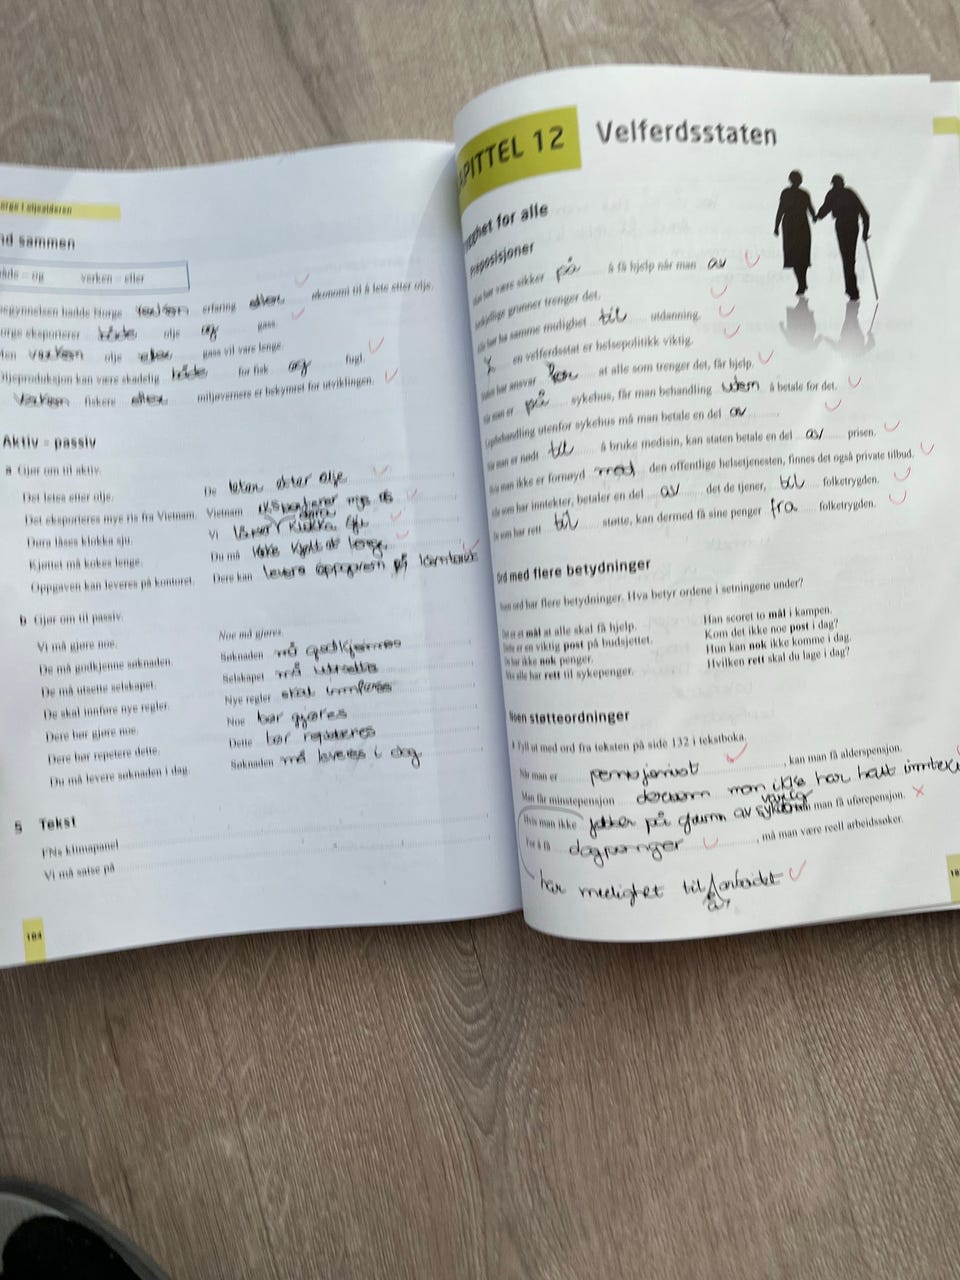 Norge i oljealderen
nd sammen
både – og verken – eller
begynnelsen hadde Norge verken erfaring eller økonomi til å lete etter olje.
orge eksporterer både olje og gass.
en verken olje eller gass vil vare lenge.
Oljeproduksjon kan være skadelig både for fisk og fugl.
Verken fiskere eller miljøvernere er bekymret for utviklingen.
Aktiv – passiv
a Gjør om til aktiv.
Det letes etter olje. De leten etter olje
Det eksporteres mye ris fra Vietnam. Vietnam eksporterer mye ris
Døra låses klokka sju. Vi låser døra klokka sju
Kjøttet må kokes lenge. Du må koke kjøtt at lenge.
Oppgaven kan leveres på kontoret. Dere kan levere oppgaven på kontoret
b Gjør om til passiv.
Vi må gjøre noe. Noe må gjøres.
De må godkjenne søknaden. Søknaden må godkjennes
De må utsette selskapet. Selskapet må utsettes
De skal innføre nye regler. Nye regler skal innføres
Dere bør gjøre noe. Noe bør gjøres
Dere bør repetere dette. Dette bør repeteres
Du må levere søknaden i dag. Søknaden må leveres i dag
5 Tekst
FNs klimapanel
Vi må satse på
184
APITTEL 12 Velferdsstaten
Trygghet for alle
Preposisjoner
være sikker på å få hjelp når man av
forskjellige grunner trenger det.
ha samme mulighet til utdanning.
I en velferdsstat er helsepolitikk viktig.
har ansvar for at alle som trenger det, får hjelp.
Når man er på sykehus, får man behandling uten å betale for det.
Legebehandling utenfor sykehus må man betale en del av
Når man er nødt til å bruke medisin, kan staten betale en del av prisen.
Hvis man ikke er fornøyd med den offentlige helsetjenesten, finnes det også private tilbud.
Alle som har inntekter, betaler en del av det de tjener, til folketrygden.
De som har rett til støtte, kan dermed få sine penger fra folketrygden.
Ord med flere betydninger
Noen ord har flere betydninger. Hva betyr ordene i setningene under?
Det er et mål at alle skal få hjelp. Han scoret to mål i kampen.
Dette er en viktig post på budsjettet. Kom det ikke noe post i dag?
De har ikke nok penger. Hun kan nok ikke komme i dag.
Ikke alle har rett til sykepenger. Hvilken rett skal du lage i dag?
Noen støtteordninger
Fyll ut med ord fra teksten på side 132 i tekstboka.
Når man er pensjonist , kan man få alderspensjon.
Man får minstepensjon dersom man ikke har hatt inntekt
varig
Hvis man ikke jobber på grunn av sykdom man få uførepensjon.
For å få dagpenger , må man være reell arbeidssøker.
har mulighet til arbeidet
å